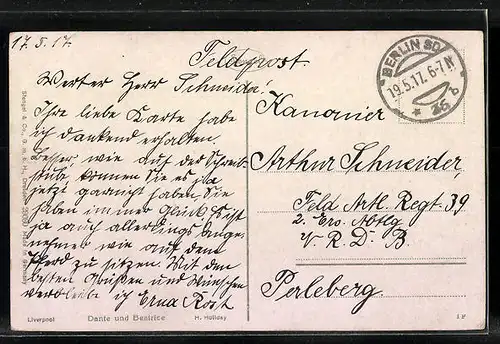 17.5.17.
Feldpost.
Werter Herr Schneider!
Ihre liebe Karte habe
ich dankend erhalten.
Besser, wie auf der Schreib-
stube können Sie es ja
jetzt garnicht haben, Sie
haben immer Glück. Ist
ja auch allerdings ange-
nehmer wie auf dem
Pferd zu sitzen. Mit den
besten Grüßen und Wünschen
verbleibe ich Erna Rost
BERLIN SO
19.5.17. 6-7 N.
* 36 b
Kanonier
Arthur Schneider,
Feld Artl. Regt. 39
2. Ers. Abtlg
V. R. D. B.
Perleberg.
Stengel & Co., G. m. b. H., Dresden
Made in Germany
Liverpool Dante und Beatrice H. Holiday